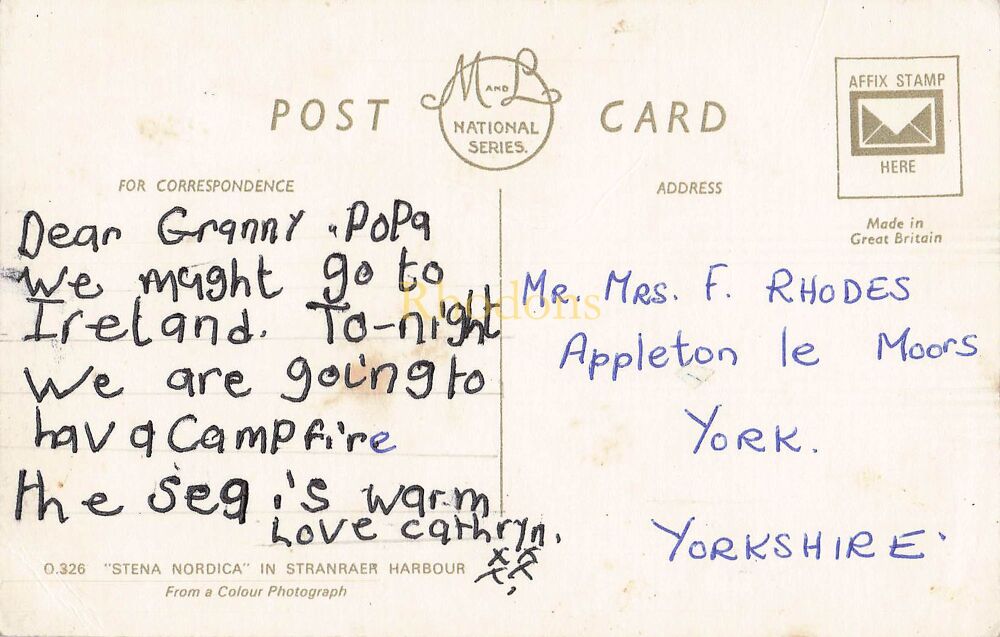 POST CARD
M AND L
NATIONAL
SERIES.
AFFIX STAMP
HERE
FOR CORRESPONDENCE
ADDRESS
Made in
Great Britain
Dear Granny . PoPa
We myght go to
Ireland. To-night
We are going to
hav a Camp fire
the sea is warm
Love cathryn.
xx
xx
MR. MRS. F. RHODES
Appleton le Moors
YORK.
YORKSHIRE.
Rhodons
O.326 "STENA NORDICA" IN STRANRAER HARBOUR
From a Colour Photograph